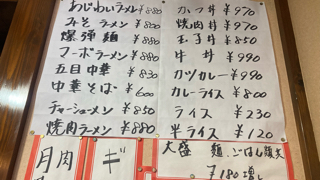 あじわいラーメン ¥880
みそラーメン ¥800
爆弾麺 ¥880
マーボラーメン ¥880
五目中華 ¥830
中華そば ¥600
チャーシューメン ¥850
焼肉ラーメン ¥880
カツ丼 ¥970
焼肉丼 ¥970
玉子丼 ¥850
牛丼 ¥990
カツカレー ¥990
カレーライス ¥800
ライス ¥230
半ライス ¥120
大盛 麺、ごはん類
¥180増し
月
肉
ギ